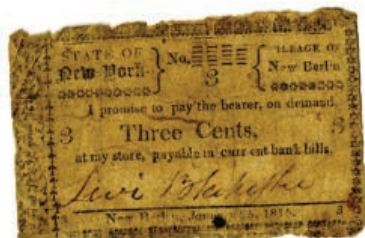 STATE OF No. ILLAGE OF
New York. 3 New Berlin
I promise to pay the bearer, on demand
3 Three Cents, 3
at my store, payable in current bank bills.
Levi Blakeslee
New Berlin, 1815. 3